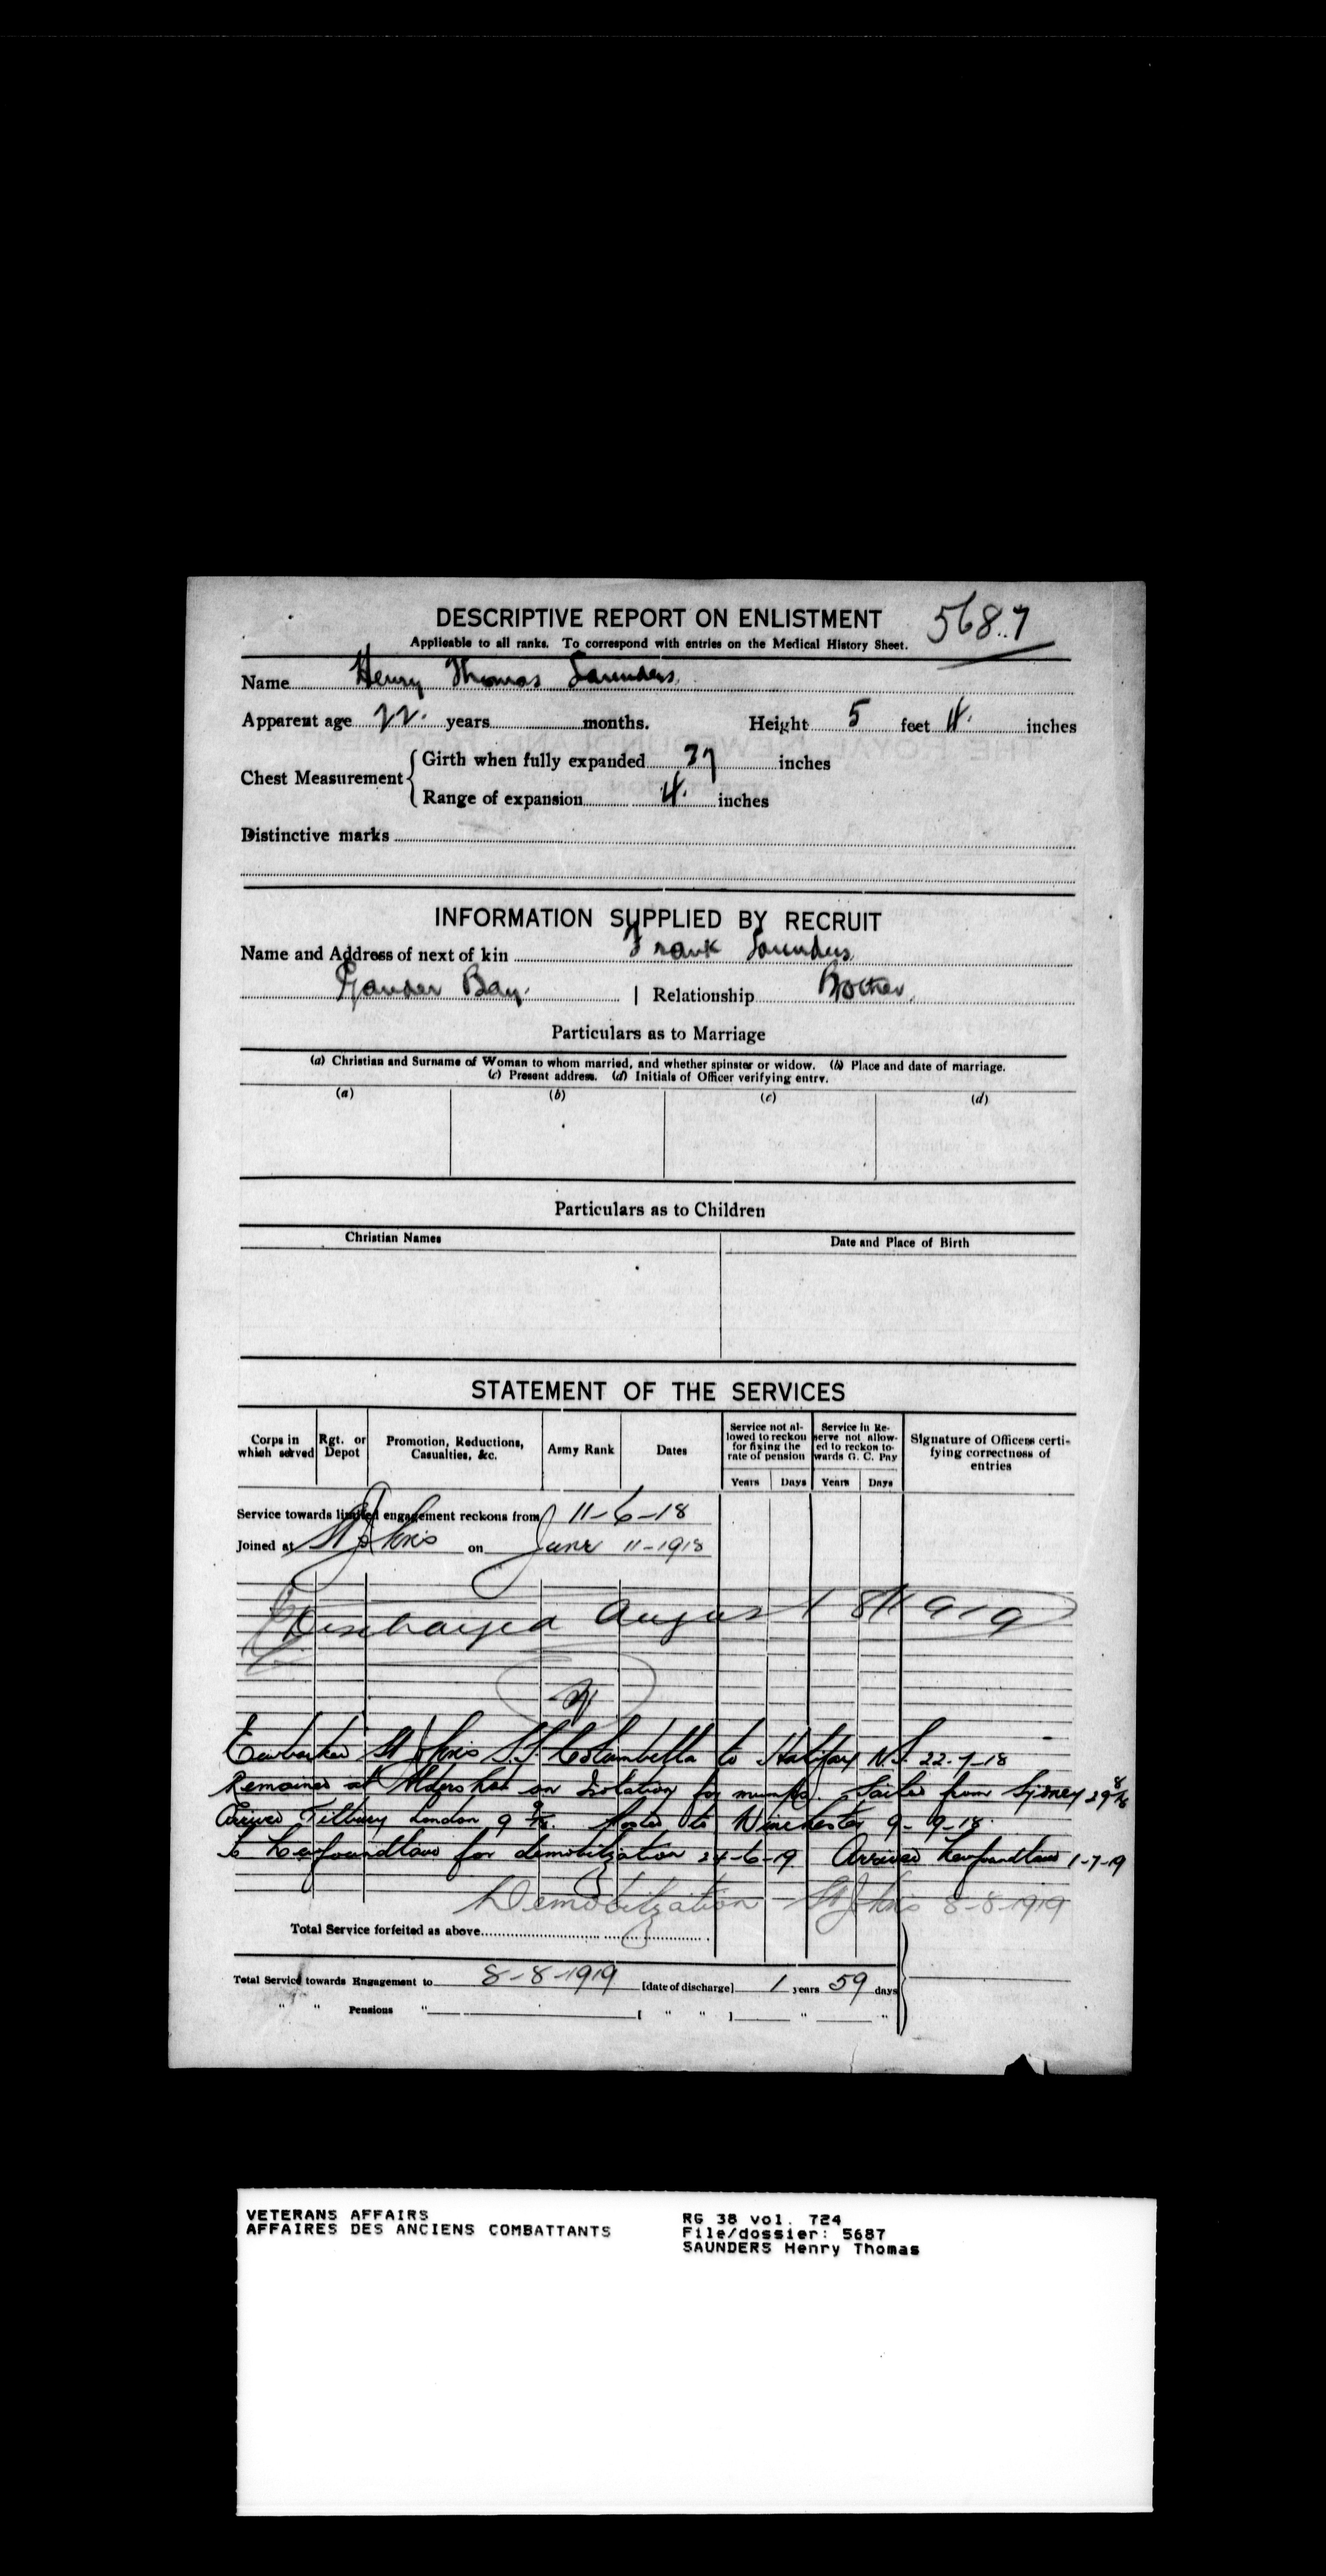 DESCRIPTIVE REPORT ON ENLISTMENT 5687
Applicable to all ranks. To correspond with entries on the Medical History Sheet.
Name Henry Thomas Saunders
Apparent age 22 years months. Height 5 feet 4 inches
Chest Measurement { Girth when fully expanded 37 inches
Range of expansion 4 inches
Distinctive marks
INFORMATION SUPPLIED BY RECRUIT
Name and Address of next of kin Frank Saunders
Gander Bay. | Relationship Brother
Particulars as to Marriage
(a) Christian and Surname of Woman to whom married, and whether spinster or widow. (b) Place and date of marriage.
(c) Present address. (d) Initials of Officer verifying entry.
(a) (b) (c) (d)
Particulars as to Children
Christian Names Date and Place of Birth
STATEMENT OF THE SERVICES
Corps in which served Rgt. or Depot Promotion, Reductions, Casualties, &c. Army Rank Dates Service not allowed to reckon for fixing the rate of pension Service in Reserve not allowed to reckon towards G. C. Pay Signature of Officers certifying correctness of entries
Years Days Years Days
Service towards limited engagement reckons from 11-6-18
Joined at St Johns on June 11-1918
Discharged August 8th 1919
Embarked St Johns S.S. Columbella to Halifax N.S. 22-7-18
Remained at Aldershot on Isolation for mumps. Sailed from Sydney 29 8/18
Arrived Tilbury London 9 9/18. Posted to Winchester 9-9-18.
To Newfoundland for demobilization 24-6-19 Arrived Newfoundland 1-7-19
Demobilization St Johns 8-8-1919
Total Service forfeited as above
Total Service towards Engagement to 8-8-1919 [date of discharge] 1 years 59 days
" " Pensions " [ " " ] " "
VETERANS AFFAIRS RG 38 vol. 724
AFFAIRES DES ANCIENS COMBATTANTS File/dossier: 5687
SAUNDERS Henry Thomas